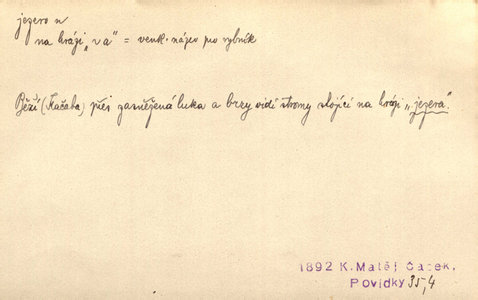 jezero n
na hrázi „ra“ = venk. název pro rybník
Běží (Kačaba) přes zasněžená luka a brzy vidí stromy stojící na hrázi „jezera“.
1892 K. Matěj Čapek,
Povídky 35,4